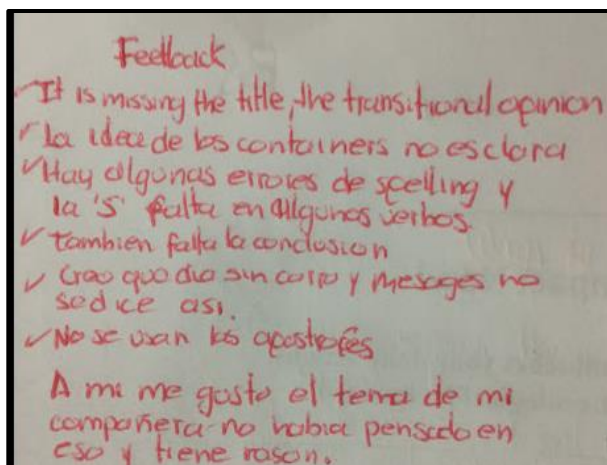 Feedback
It is missing the title, the transitional opinion
La idea de los containers no es clara
Hay algunas errores de spelling y
la 's' falta en algunos verbos.
tambien falta la conclusion
Creo que dia sin carro y mesages no
se dice asi.
No se usan los apostrofes
A mi me gusto el tema de mi
compañera no habia pensado en
eso y tiene rason.